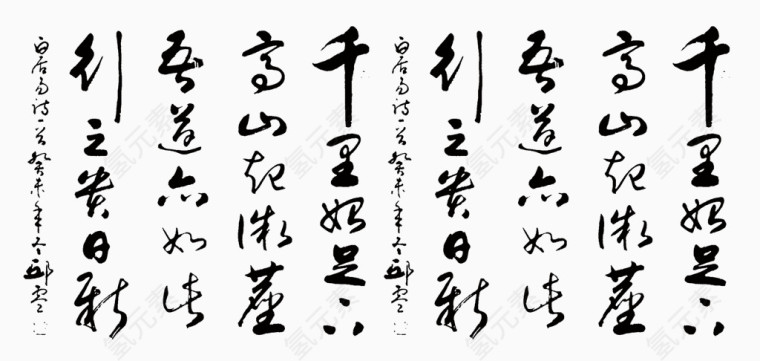 千里始足下
高山起微尘
吾道亦如此
行之贵日新
白居易诗一首癸未年冬
千里始足下
高山起微尘
吾道亦如此
行之贵日新
白居易诗一首癸未年冬
氢元素